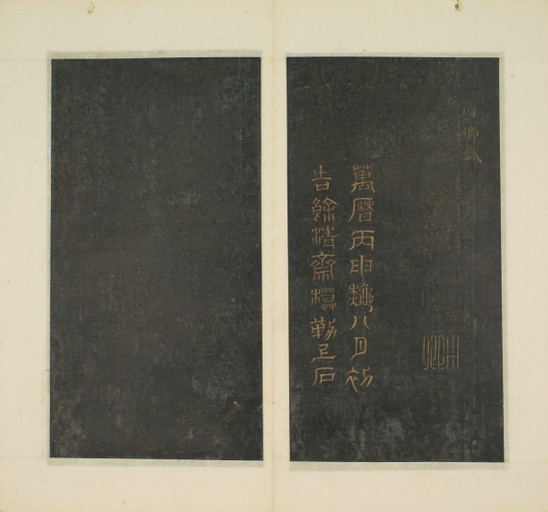 萬曆丙申穐八月初
吉餘清齋摹勒上石